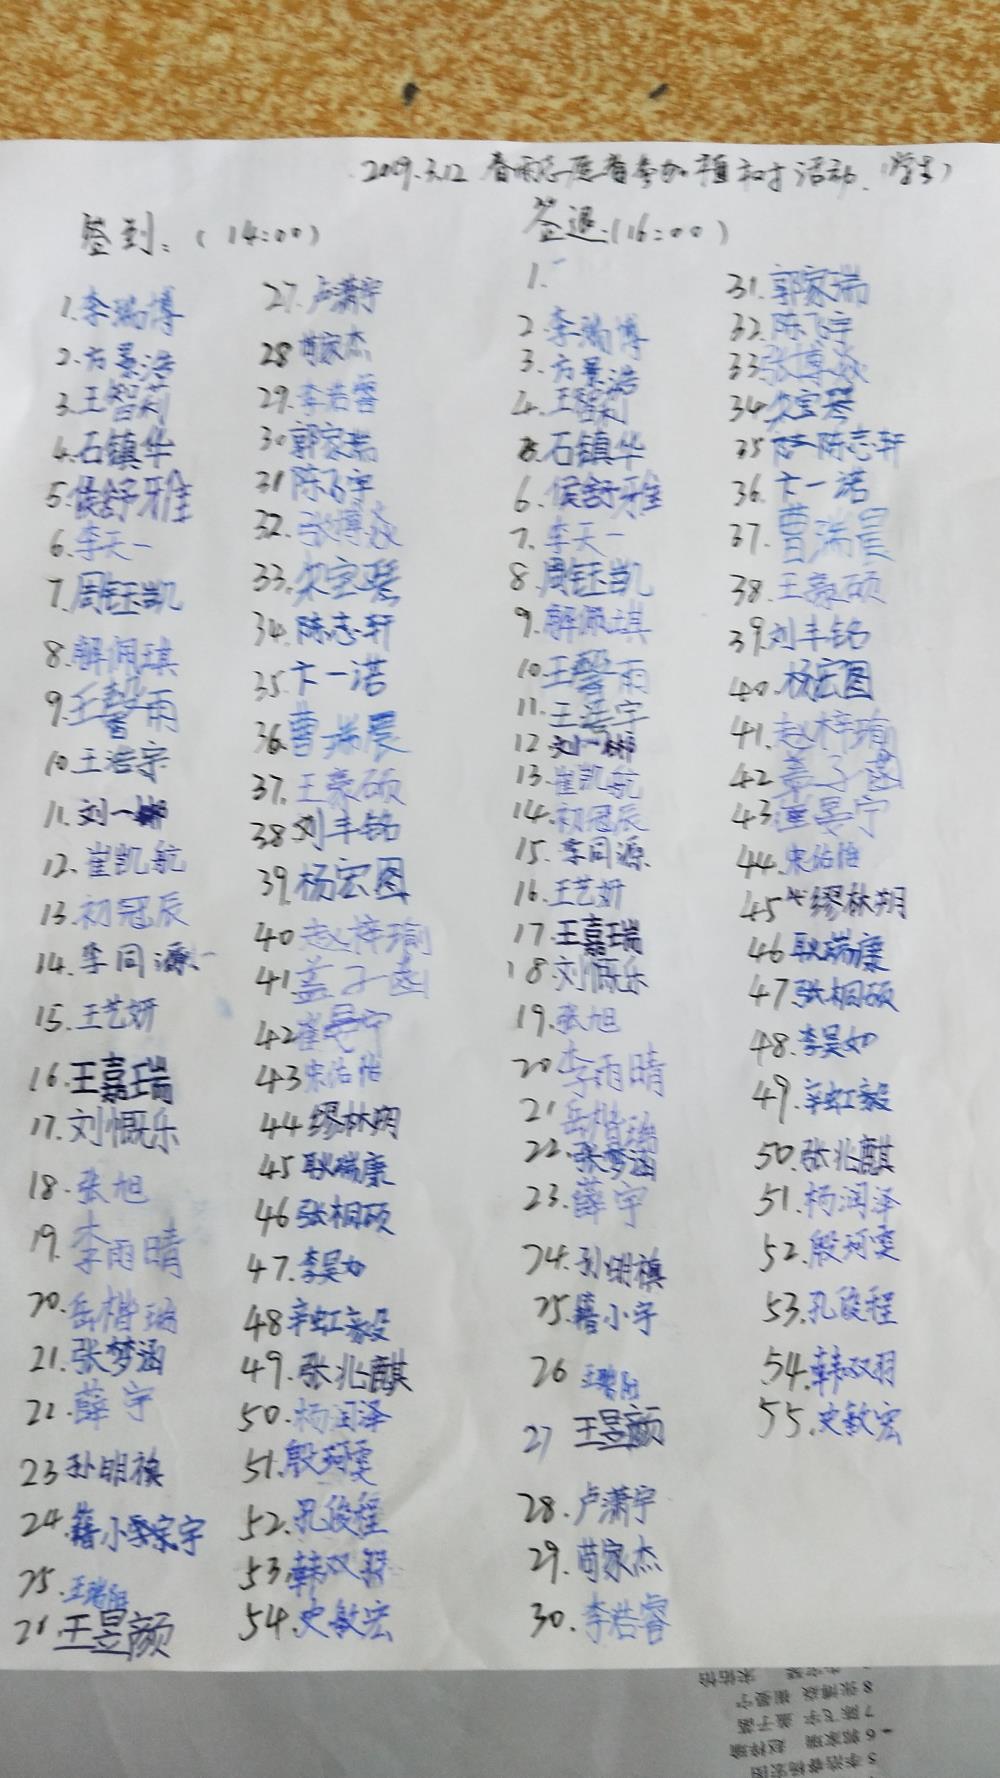 2019.3.12 春雨志愿者参加植树活动.(学生)
签到:(14:00)
1.李瑞博
2.方景浩
3.王智莉
4.石镇华
5.侯舒雅
6.李天一
7.周钰凯
8.解佩琪
9.王馨雨
10.王浩宇
11.刘一彬
12.崔凯航
13.初冠辰
14.李同源
15.王艺妍
16.王嘉瑞
17.刘慨乐
18.张旭
19.李雨晴
20.岳楷瑞
21.张梦涵
22.薛宇
23.孙明祺
24.藉小宇
25.王瑞阳
26.王昱颜
27.卢潇宇
28.苘家杰
29.李浩睿
30.郭家瑞
31.陈飞宇
32.张博焱
33.宋宝琴
34.陈志轩
35.卞一诺
36.曹瑞晨
37.王豪硕
38.刘丰铭
39.杨宏图
40.赵梓瑜
41.盖子菡
42.崔晏宁
43.宋佑怡
44.缪林翔
45.耿瑞康
46.张桐硕
47.李昊如
48.辛虹毅
49.张兆麒
50.杨润泽
51.殷珂雯
52.孔俊程
53.韩双羽
54.史敏宏
签退:(16:00)
1.
2.李瑞博
3.方景浩
4.王智莉
5.石镇华
6.侯舒雅
7.李天一
8.周钰凯
9.解佩琪
10.王馨雨
11.王浩宇
12.刘一彬
13.崔凯航
14.初冠辰
15.李同源
16.王艺妍
17.王嘉瑞
18.刘慨乐
19.张旭
20.李雨晴
21.岳楷瑞
22.张梦涵
23.薛宇
24.孙明祺
25.藉小宇
26.王瑞阳
27.王昱颜
28.卢潇宇
29.苘家杰
30.李浩睿
31.郭家瑞
32.陈飞宇
33.张博焱
34.宋宝琴
35.陈志轩
36.卞一诺
37.曹瑞晨
38.王豪硕
39.刘丰铭
40.杨宏图
41.赵梓瑜
42.盖子菡
43.崔晏宁
44.宋佑怡
45.缪林翔
46.耿瑞康
47.张桐硕
48.李昊如
49.辛虹毅
50.张兆麒
51.杨润泽
52.殷珂雯
53.孔俊程
54.韩双羽
55.史敏宏
5 李浩睿 杨宏图
6 郭家瑞 赵梓瑜
7 陈飞宇 盖子菡
8 张博焱 崔晏宁
宋佑怡